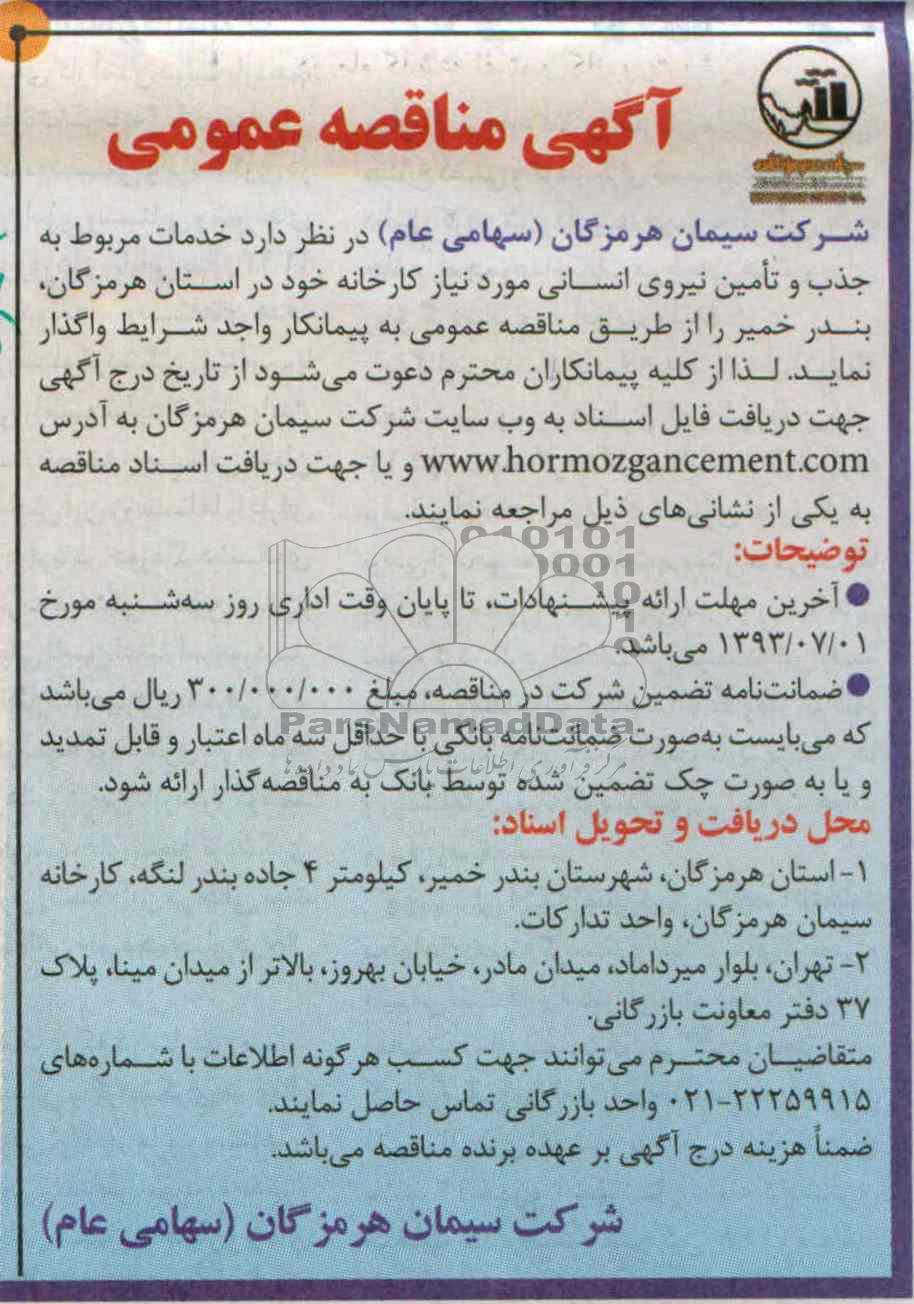 آگهی مناقصه عمومی
شرکت سیمان هرمزگان (سهامی عام) در نظر دارد خدمات مربوط به
جذب و تأمین نیروی انسانی مورد نیاز کارخانه خود در استان هرمزگان،
بندر خمیر را از طریق مناقصه عمومی به پیمانکار واجد شرایط واگذار
نماید. لذا از کلیه پیمانکاران محترم دعوت می‌شود از تاریخ درج آگهی
جهت دریافت فایل اسناد به وب سایت شرکت سیمان هرمزگان به آدرس
www.hormozgancement.com و یا جهت دریافت اسناد مناقصه
به یکی از نشانی‌های ذیل مراجعه نمایند.
توضیحات:
● آخرین مهلت ارائه پیشنهادات، تا پایان وقت اداری روز سه‌شنبه مورخ
۱۳۹۳/۰۷/۰۱ می‌باشد.
● ضمانت‌نامه تضمین شرکت در مناقصه، مبلغ ۳۰۰/۰۰۰/۰۰۰ ریال می‌باشد
ParsNamadData
که می‌بایست به‌صورت ضمانت‌نامه بانکی با حداقل سه ماه اعتبار و قابل تمدید
و یا به صورت چک تضمین شده توسط بانک به مناقصه‌گذار ارائه شود.
محل دریافت و تحویل اسناد:
۱- استان هرمزگان، شهرستان بندر خمیر، کیلومتر ۴ جاده بندر لنگه، کارخانه
سیمان هرمزگان، واحد تدارکات.
۲- تهران، بلوار میرداماد، میدان مادر، خیابان بهروز، بالاتر از میدان مینا، پلاک
۳۷ دفتر معاونت بازرگانی.
متقاضیان محترم می‌توانند جهت کسب هرگونه اطلاعات با شماره‌های
۰۲۱-۲۲۲۵۹۹۱۵ واحد بازرگانی تماس حاصل نمایند.
ضمناً هزینه درج آگهی بر عهده برنده مناقصه می‌باشد.
شرکت سیمان هرمزگان (سهامی عام)